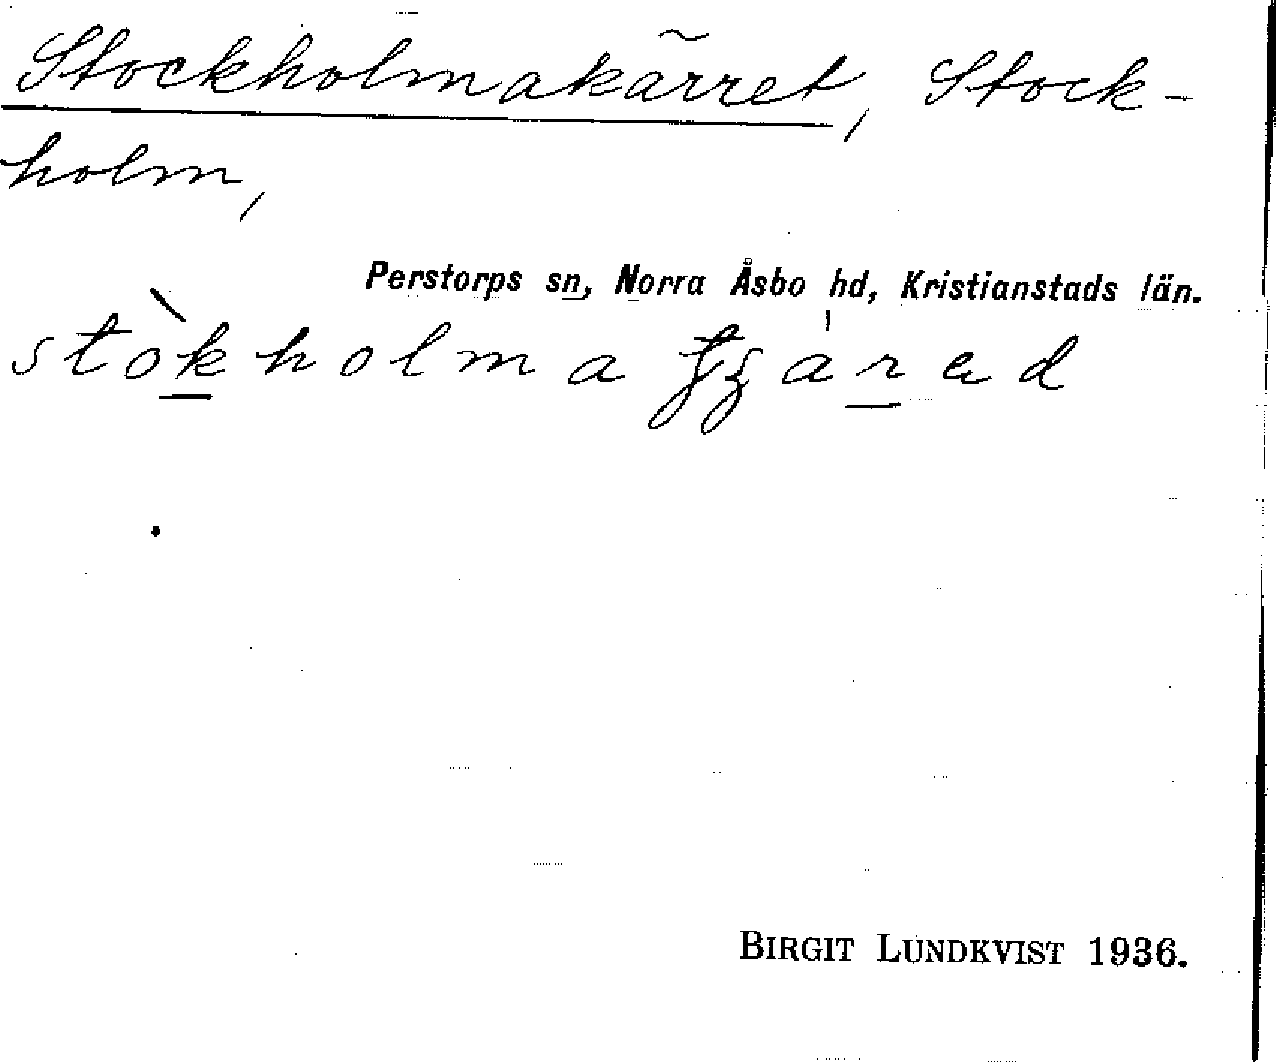 Stockholmakärret, Stock-
holm,
Perstorps sn, Norra Åsbo hd, Kristianstads län.
BIRGIT LUNDKVIST 1936.